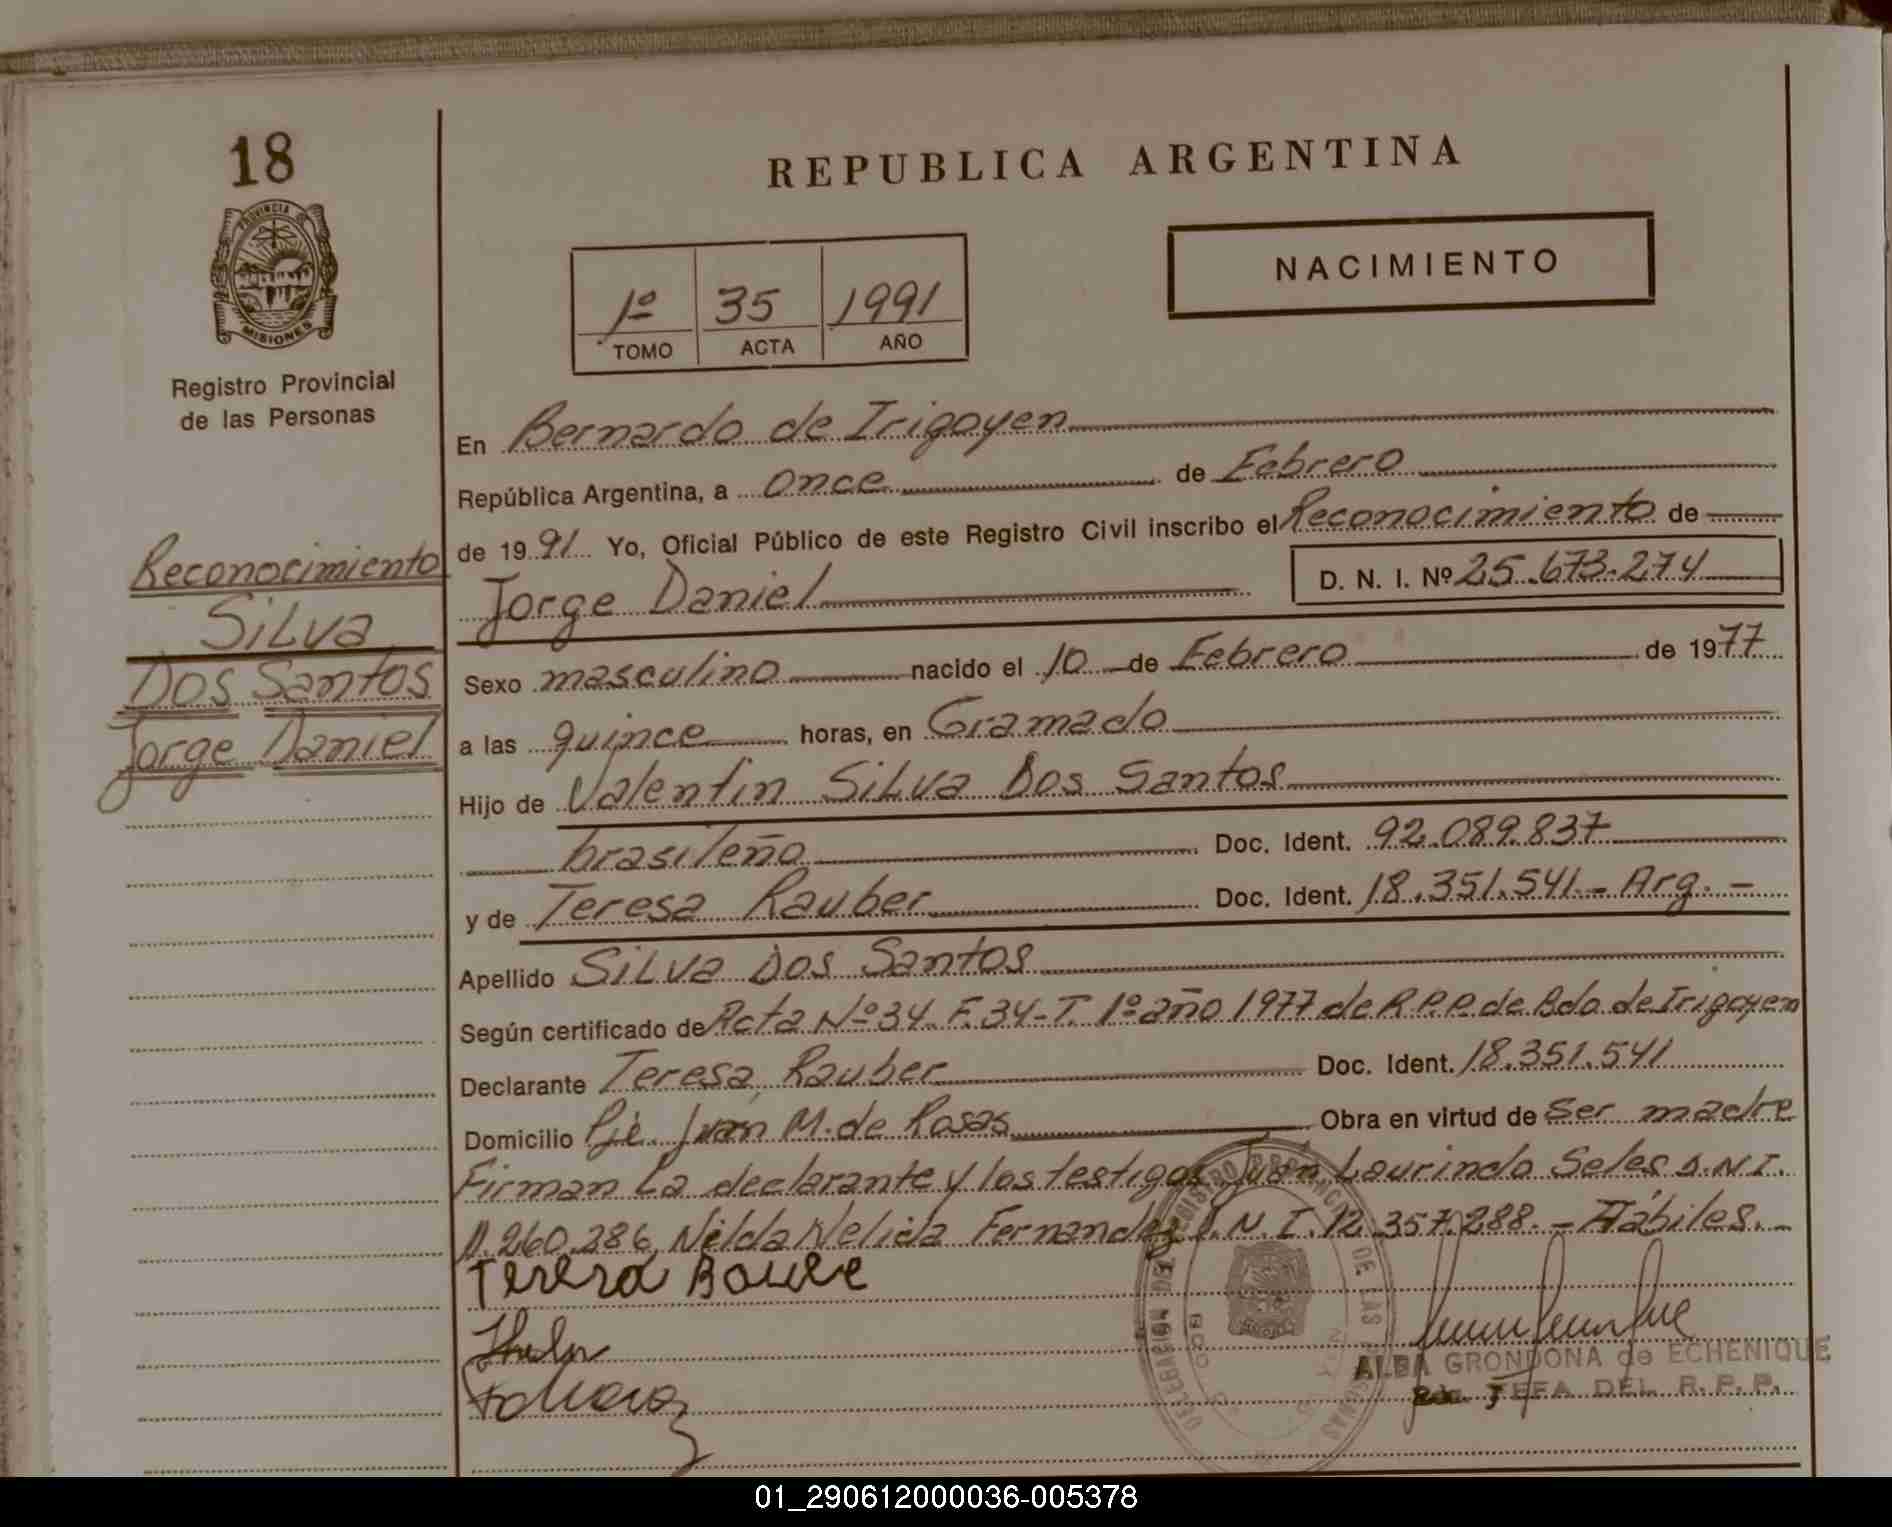 18
PROVINCIA DE
MISIONES
Registro Provincial
de las Personas
Reconocimiento
Silva
Dos Santos
Jorge Daniel
REPUBLICA ARGENTINA
NACIMIENTO
1º 35 1991
TOMO ACTA AÑO
En Bernardo de Irigoyen
República Argentina, a once de Febrero
de 1991 Yo, Oficial Público de este Registro Civil inscribo el Reconocimiento de
Jorge Daniel D. N. I. Nº 25.673.274
Sexo masculino nacido el 10 de Febrero de 1977
a las quince horas, en Gramado
Hijo de Valentin Silva Dos Santos
brasileño Doc. Ident. 92.089.837
y de Teresa Rauber Doc. Ident. 18.351.541 - Arg. -
Apellido Silva Dos Santos
Según certificado de Acta Nº 34 F. 34 - T. 1º año 1977 de R.P.P. de Bdo. de Irigoyen
Declarante Teresa Rauber Doc. Ident. 18.351.541
Domicilio Pje. Juan M. de Rosas Obra en virtud de ser madre
Firman la declarante y los testigos Juan Lourindo Seles D.N.I.
260.286, Nilda Nelida Fernandez D.N.I. 12.357.288. - Hábiles. -
Teresa
ALBA GRONDONA de ECHENIQUE
JEFA DEL R.P.P.
DELEGACION DEL REGISTRO PROVINCIAL DE LAS PERSONAS
01_290612000036-005378